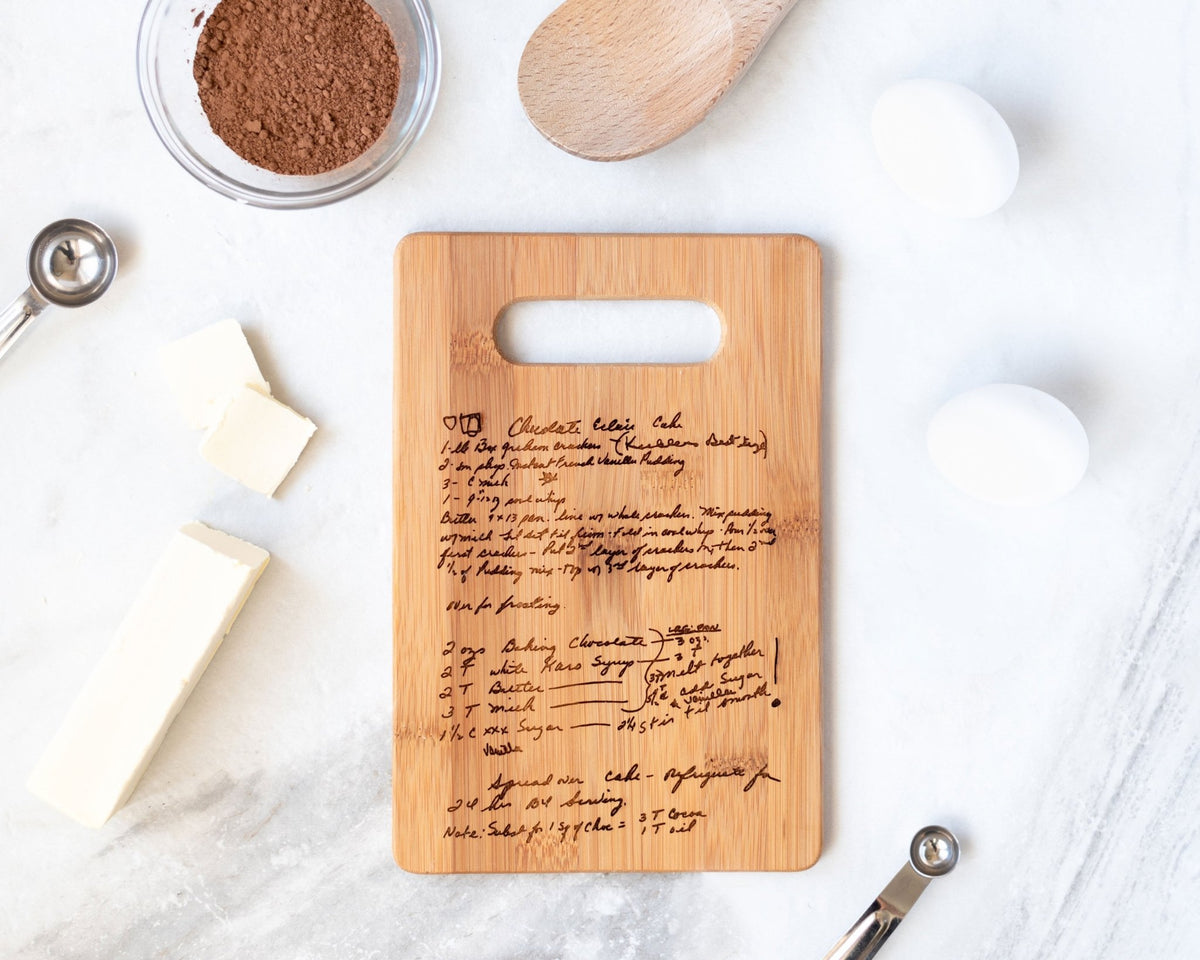 Chocolate Eclair Cake
1-lb Box graham crackers (Keeblers Best
2- sm pkgs. Instant French Vanilla Pudding
3- C milk
1- 9-12 oz cool whip
Butter 9x13 pan. line w/ whole crackers. Mix pudding
w/ milk let set til firm. Fold in cool whip. Pour 1/2 over
first crackers - Put 2nd layer of crackers on, then 2nd
1/2 of Pudding mix - Top w/ 3rd layer of crackers.
over for frosting.
2 ozs Baking Chocolate 3 ozs.
2 T white Karo Syrup 3 T
2 T Butter melt together
3 T milk add sugar
1 1/2 C xxx Sugar 2 1/4 & vanilla
stir til smooth
Vanilla
Spread over cake - Refrigerate for
24 hrs B4 Serving.
Note: Subst for 1 sq of Choc = 3 T Cocoa
1 T oil